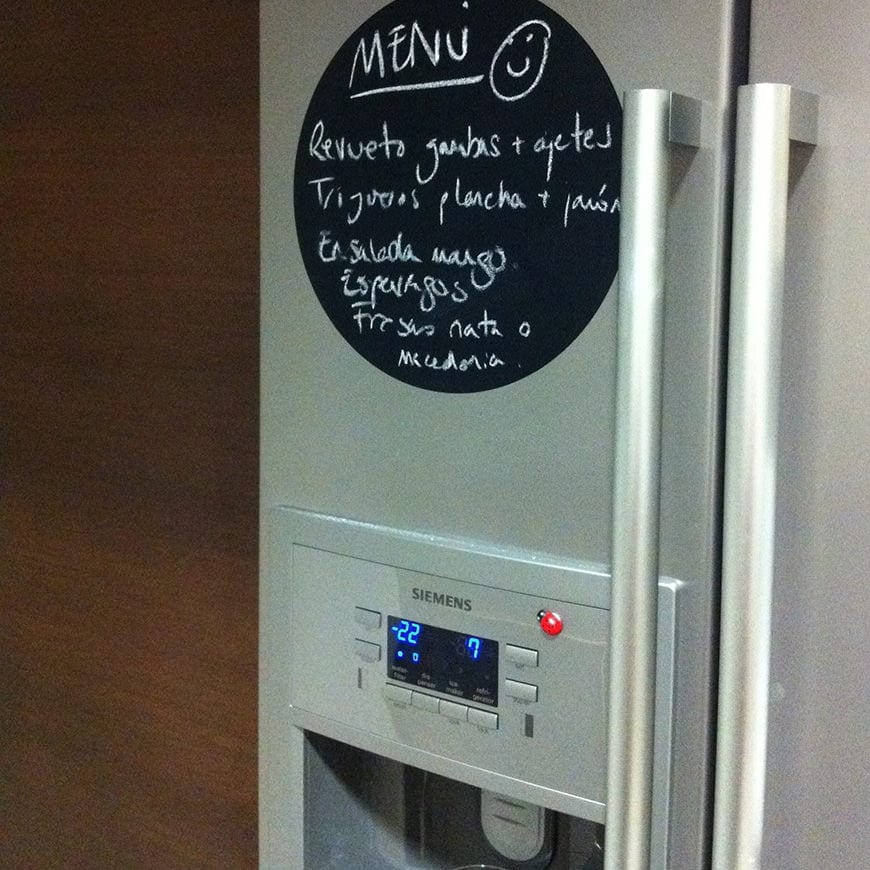 MENÚ
Revueto gambas + ajetes
Trigueros plancha + jamón
Ensalada mango
Esparragos
Fresas nata o
macedonia.
SIEMENS
-22 7
water filter dispenser ice maker refrigerator
super
lock